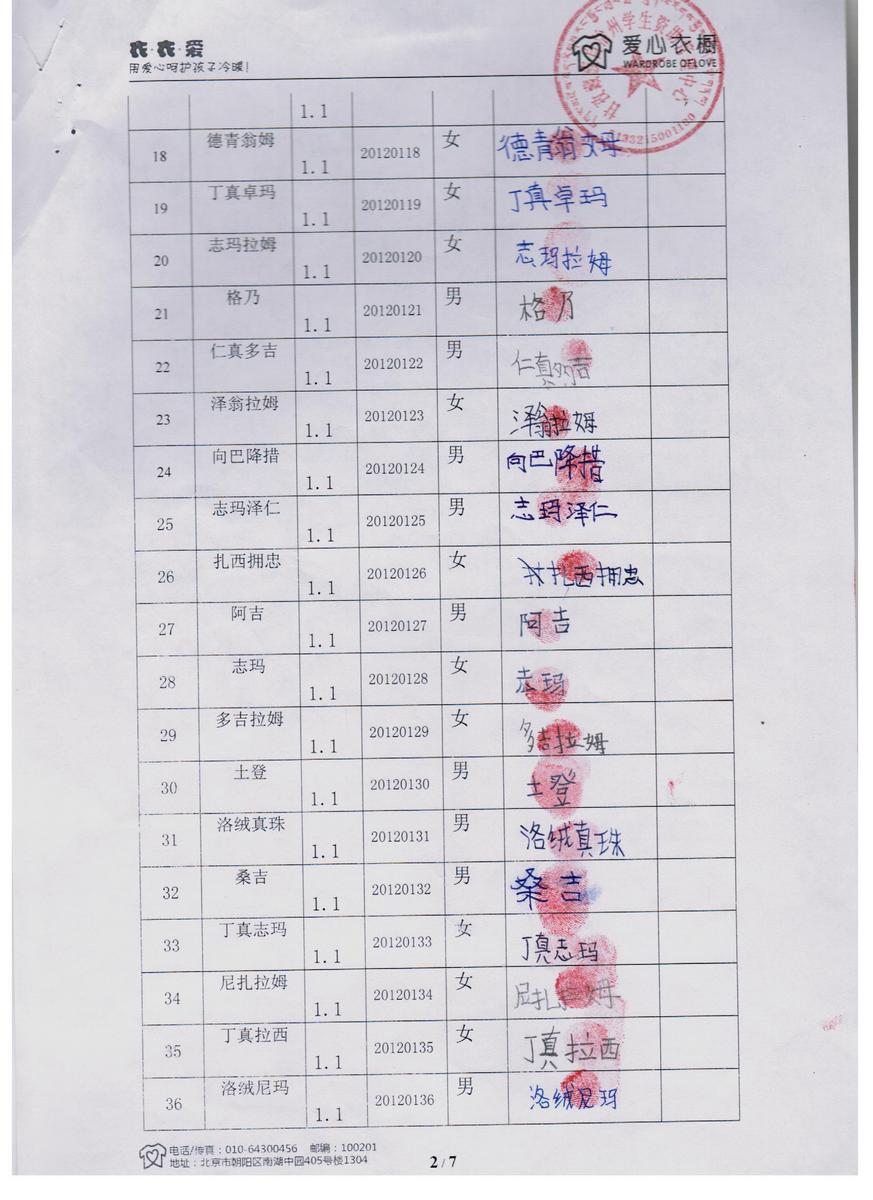 衣·衣·爱
用爱心呵护孩子冷暖!
爱心衣橱
WARDROBE OF LOVE
州学生资助
中心
1.1
18 德青翁姆 1.1 20120118 女 德青翁姆
19 丁真卓玛 1.1 20120119 女 丁真卓玛
20 志玛拉姆 1.1 20120120 女 志玛拉姆
21 格乃 1.1 20120121 男 格乃
22 仁真多吉 1.1 20120122 男 仁真多吉
23 泽翁拉姆 1.1 20120123 女 泽翁拉姆
24 向巴降措 1.1 20120124 男 向巴降措
25 志玛泽仁 1.1 20120125 男 志玛泽仁
26 扎西拥忠 1.1 20120126 女 扎西拥忠
27 阿吉 1.1 20120127 男 阿吉
28 志玛 1.1 20120128 女 志玛
29 多吉拉姆 1.1 20120129 女 多吉拉姆
30 土登 1.1 20120130 男 土登
31 洛绒真珠 1.1 20120131 男 洛绒真珠
32 桑吉 1.1 20120132 男 桑吉
33 丁真志玛 1.1 20120133 女 丁真志玛
34 尼扎拉姆 1.1 20120134 女 尼扎拉姆
35 丁真拉西 1.1 20120135 女 丁真拉西
36 洛绒尼玛 1.1 20120136 男 洛绒尼玛
电话/传真:010-64300456 邮编:100201
地址:北京市朝阳区南湖中园405号楼1304
2 / 7